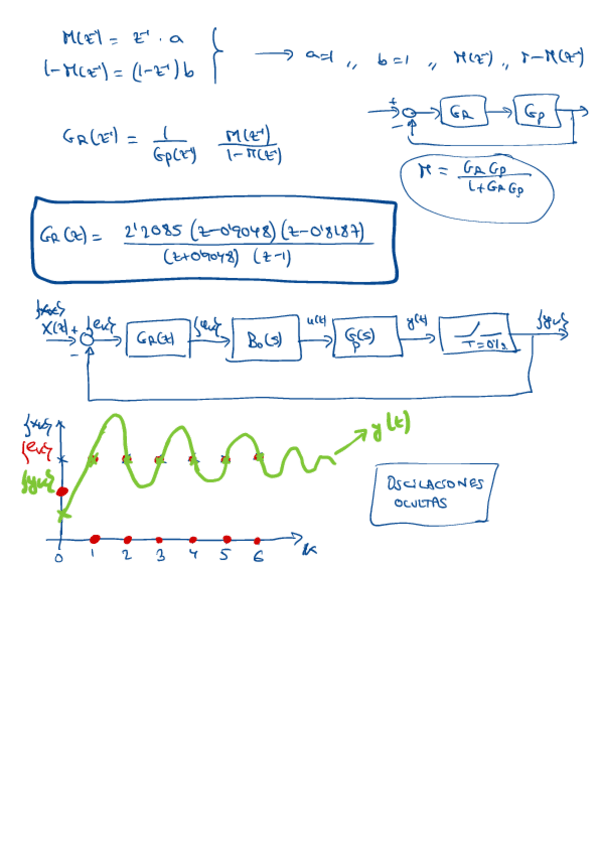 M(z⁻¹) = z⁻¹ · a
1-M(z⁻¹) = (1-z⁻¹) b
→ a=1 ,, b=1 ,, M(z⁻¹) ,, 1-M(z⁻¹)
+ - GR Gp
GR(z⁻¹) = 1/Gp(z⁻¹) M(z⁻¹)/1-M(z⁻¹)
M = GR Gp / 1+GR Gp
GR(z) = 2'2085 (z-0'9048) (z-0'8187) / (z+0'9048) (z-1)
{xk}
X(z) + - {ek} GR(z) {uk} B₀(s) u(t) Gp(s) y(t) T=0'12 {yk}
{xk}
{ek}
{yk}
y(t)
OSCILACIONES
OCULTAS
0 1 2 3 4 5 6 K